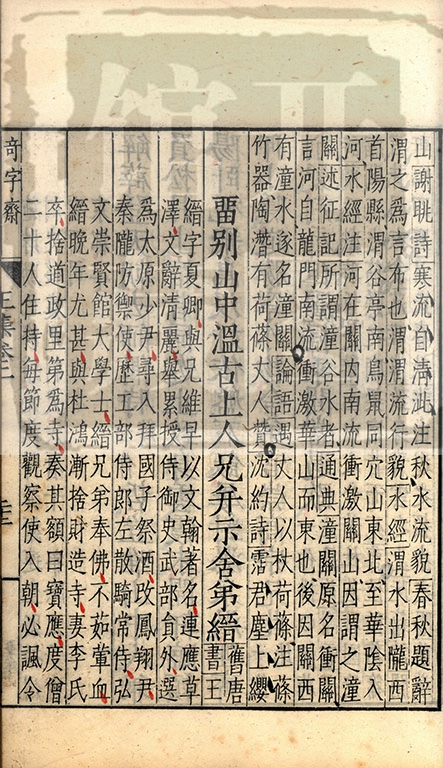 山謝眺詩寒流自清泚注秋水流貌春秋題辭
渭之為言布也渭渭流行貌水經渭水出隴西
首陽縣渭谷亭南鳥鼠同穴山東北至華陰入
河水經注河在關内南流衝激關山因謂之潼
關述征記所謂潼谷水者通典潼關原名衝關
言河自龍門南流衝激華山而東也後因關西
有潼水遂名潼關論語遇丈人以杖荷蓧注蓧
竹器陶潛有荷蓧丈人贊沈約詩霑君塵上纓
畱别山中溫古上人兄并示舍弟縉舊唐書王
縉字夏卿與兄維早以文翰著名連應草
澤文辭清麗舉累授侍御史武部員外選
為太原少尹尋入拜國子祭酒改鳳翔尹
秦隴防禦使歷工部侍郎左散騎常侍弘
文崇賢館大學士縉兄弟奉佛不茹葷血
縉晚年尤甚與杜鴻漸捨財造寺妻李氏
卒捨道政里第為寺奏其額曰寶應度僧
二十人住持每節度觀察使入朝必諷令
奇字齋